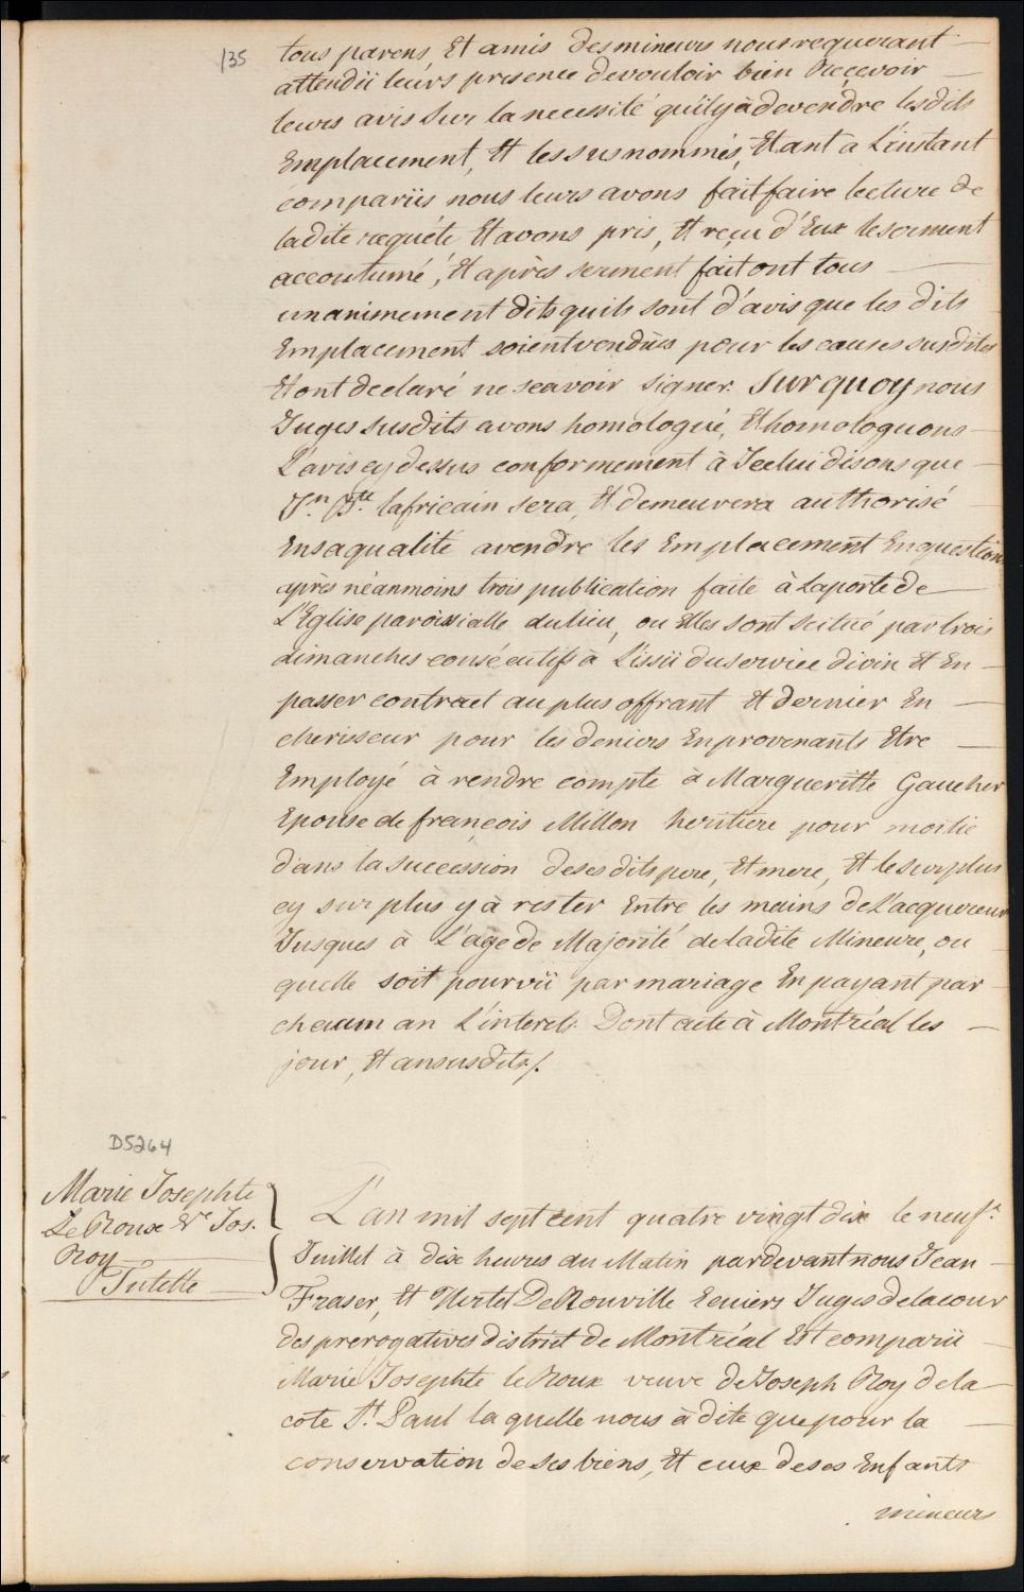 135
tous parens, Et amis des mineurs nous requerant
attendü leurs presence de vouloir bien Recevoir
leurs avis Sur la necessité quïl y à de vendre les dits
Emplacement, Et les susnommés, Etant a L'instant
comparüs nous leurs avons fait faire lecture de
ladite requéte Et avons pris, Et reçu d'Eux le serment
accoutumé, Et après serment fait ont tous
unanimement dits quils sont d'avis que les dits
Emplacement soient vendües pour les causes susdites
Et ont declaré ne scavoir signer. Sur quoy nous
Juges susdits avons homologué, Et homologuons
L'avis cy dessus conformement à Jcelui disons que
Jn. Bte. lafricain sera, Et demeurera authorisé
En sa qualité a vendre les Emplacement En question
après néanmoins trois publication faite à La porte de
L'Eglise paroissialle du lieu, ou Elles sont scitué par trois
dimanches consécutifs à L'issü du service divin Et En
passer contract au plus offrant Et dernier En
cherisseur pour les deniers En provenants Etre
Employé à rendre compte à Margueritte Gaucher
Epouse de francois Millon heritiere pour moitié
dans la succession de ses dits pere, Et mere, Et le surplus
cy surplus y à rester Entre les mains de L'acquereur
Jusques à L'age de Majorité de ladite Mineure, ou
quelle soit pourvü par mariage En payant par
chacun an L'interets. Dont acte à Montréal les
jour, Et an susdits/.
D5264
Marie Josephte
Le Roux Ve Jos.
Roy
Tutelle
L'an mil sept cent quatre vingt dix le neufe.
Juillet à dix heures du Matin pardevant nous Jean
Fraser, Et Hertel De Rouville Ecuiers Juges de la cour
des prerogatives district de Montréal Est comparü
Marie Josephte le Roux veuve de Joseph Roy de la
cote St. Paul laquelle nous à dite que pour la
conservation de ses biens, Et ceux de ses Enfants
mineurs